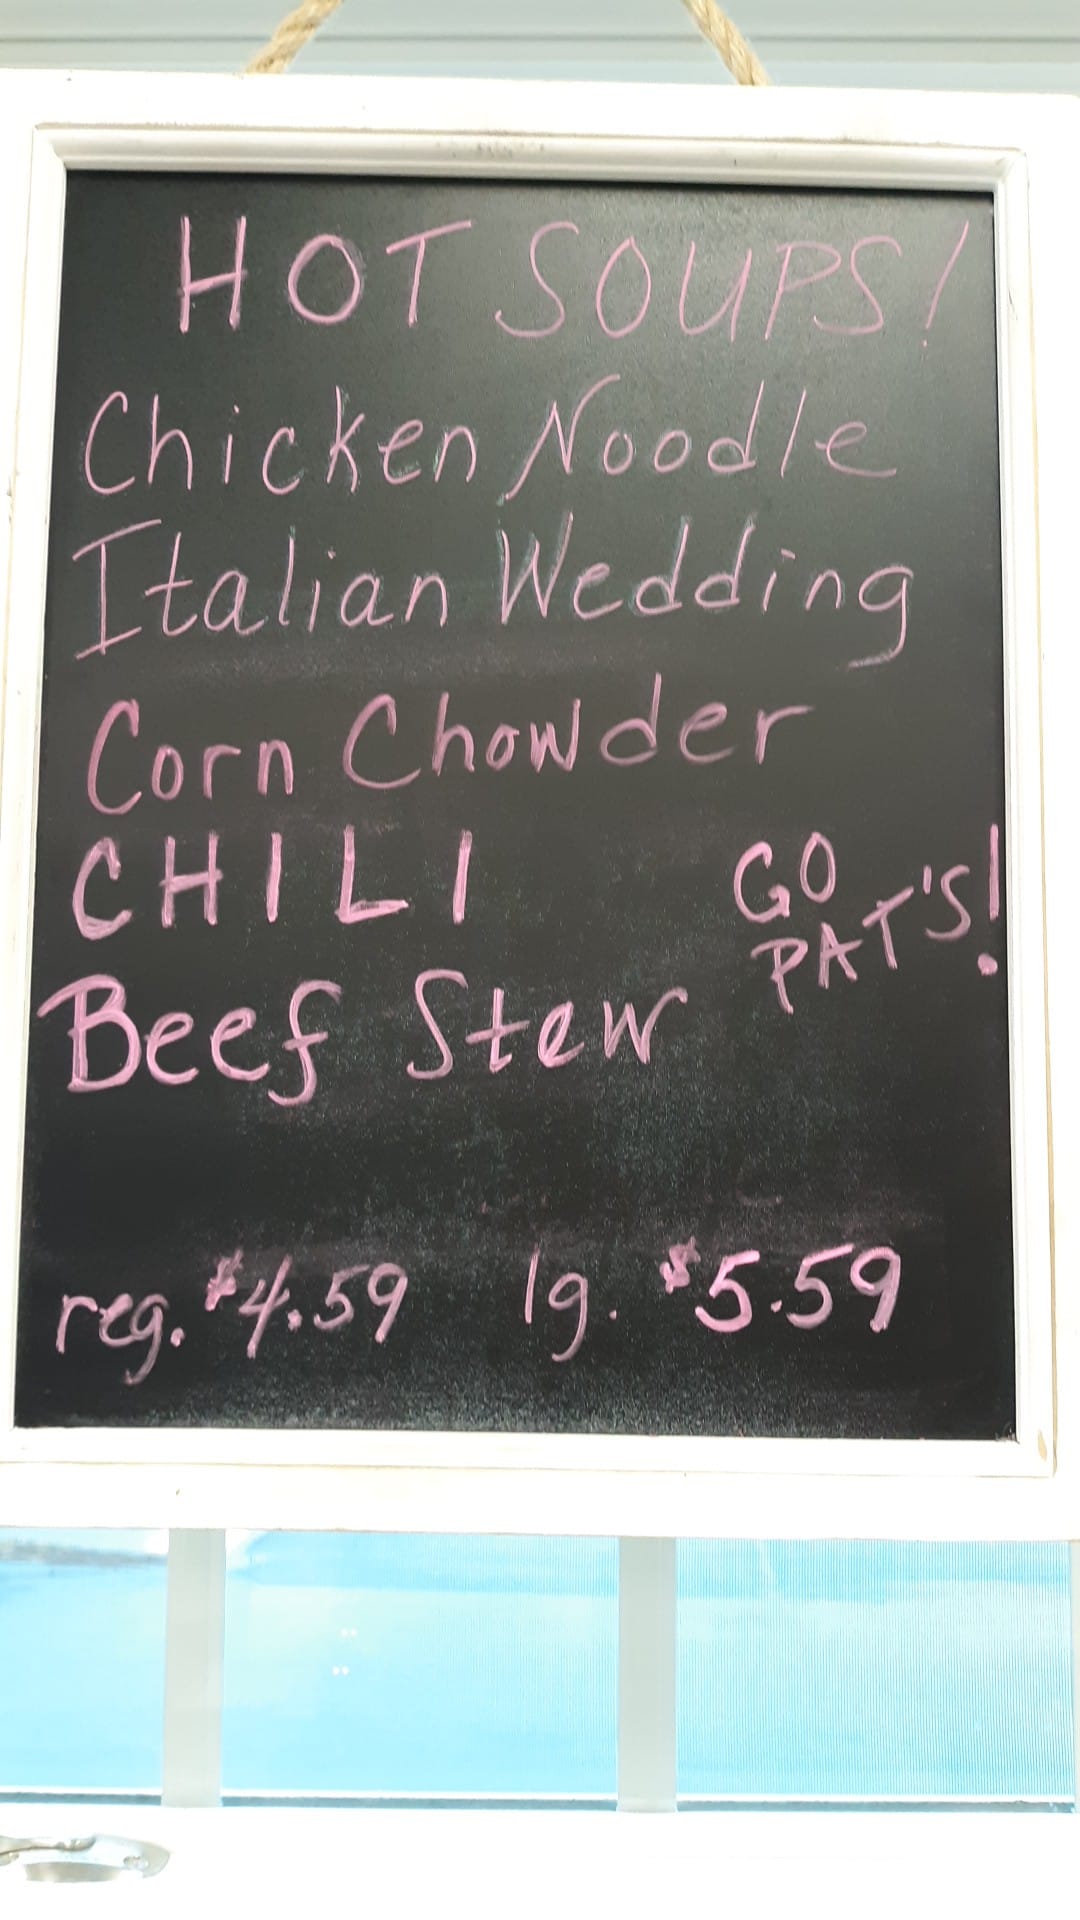 HOT SOUPS!
Chicken Noodle
Italian Wedding
Corn Chowder
CHILI
GO
PAT'S!
Beef Stew
reg. $4.59 lg. $5.59